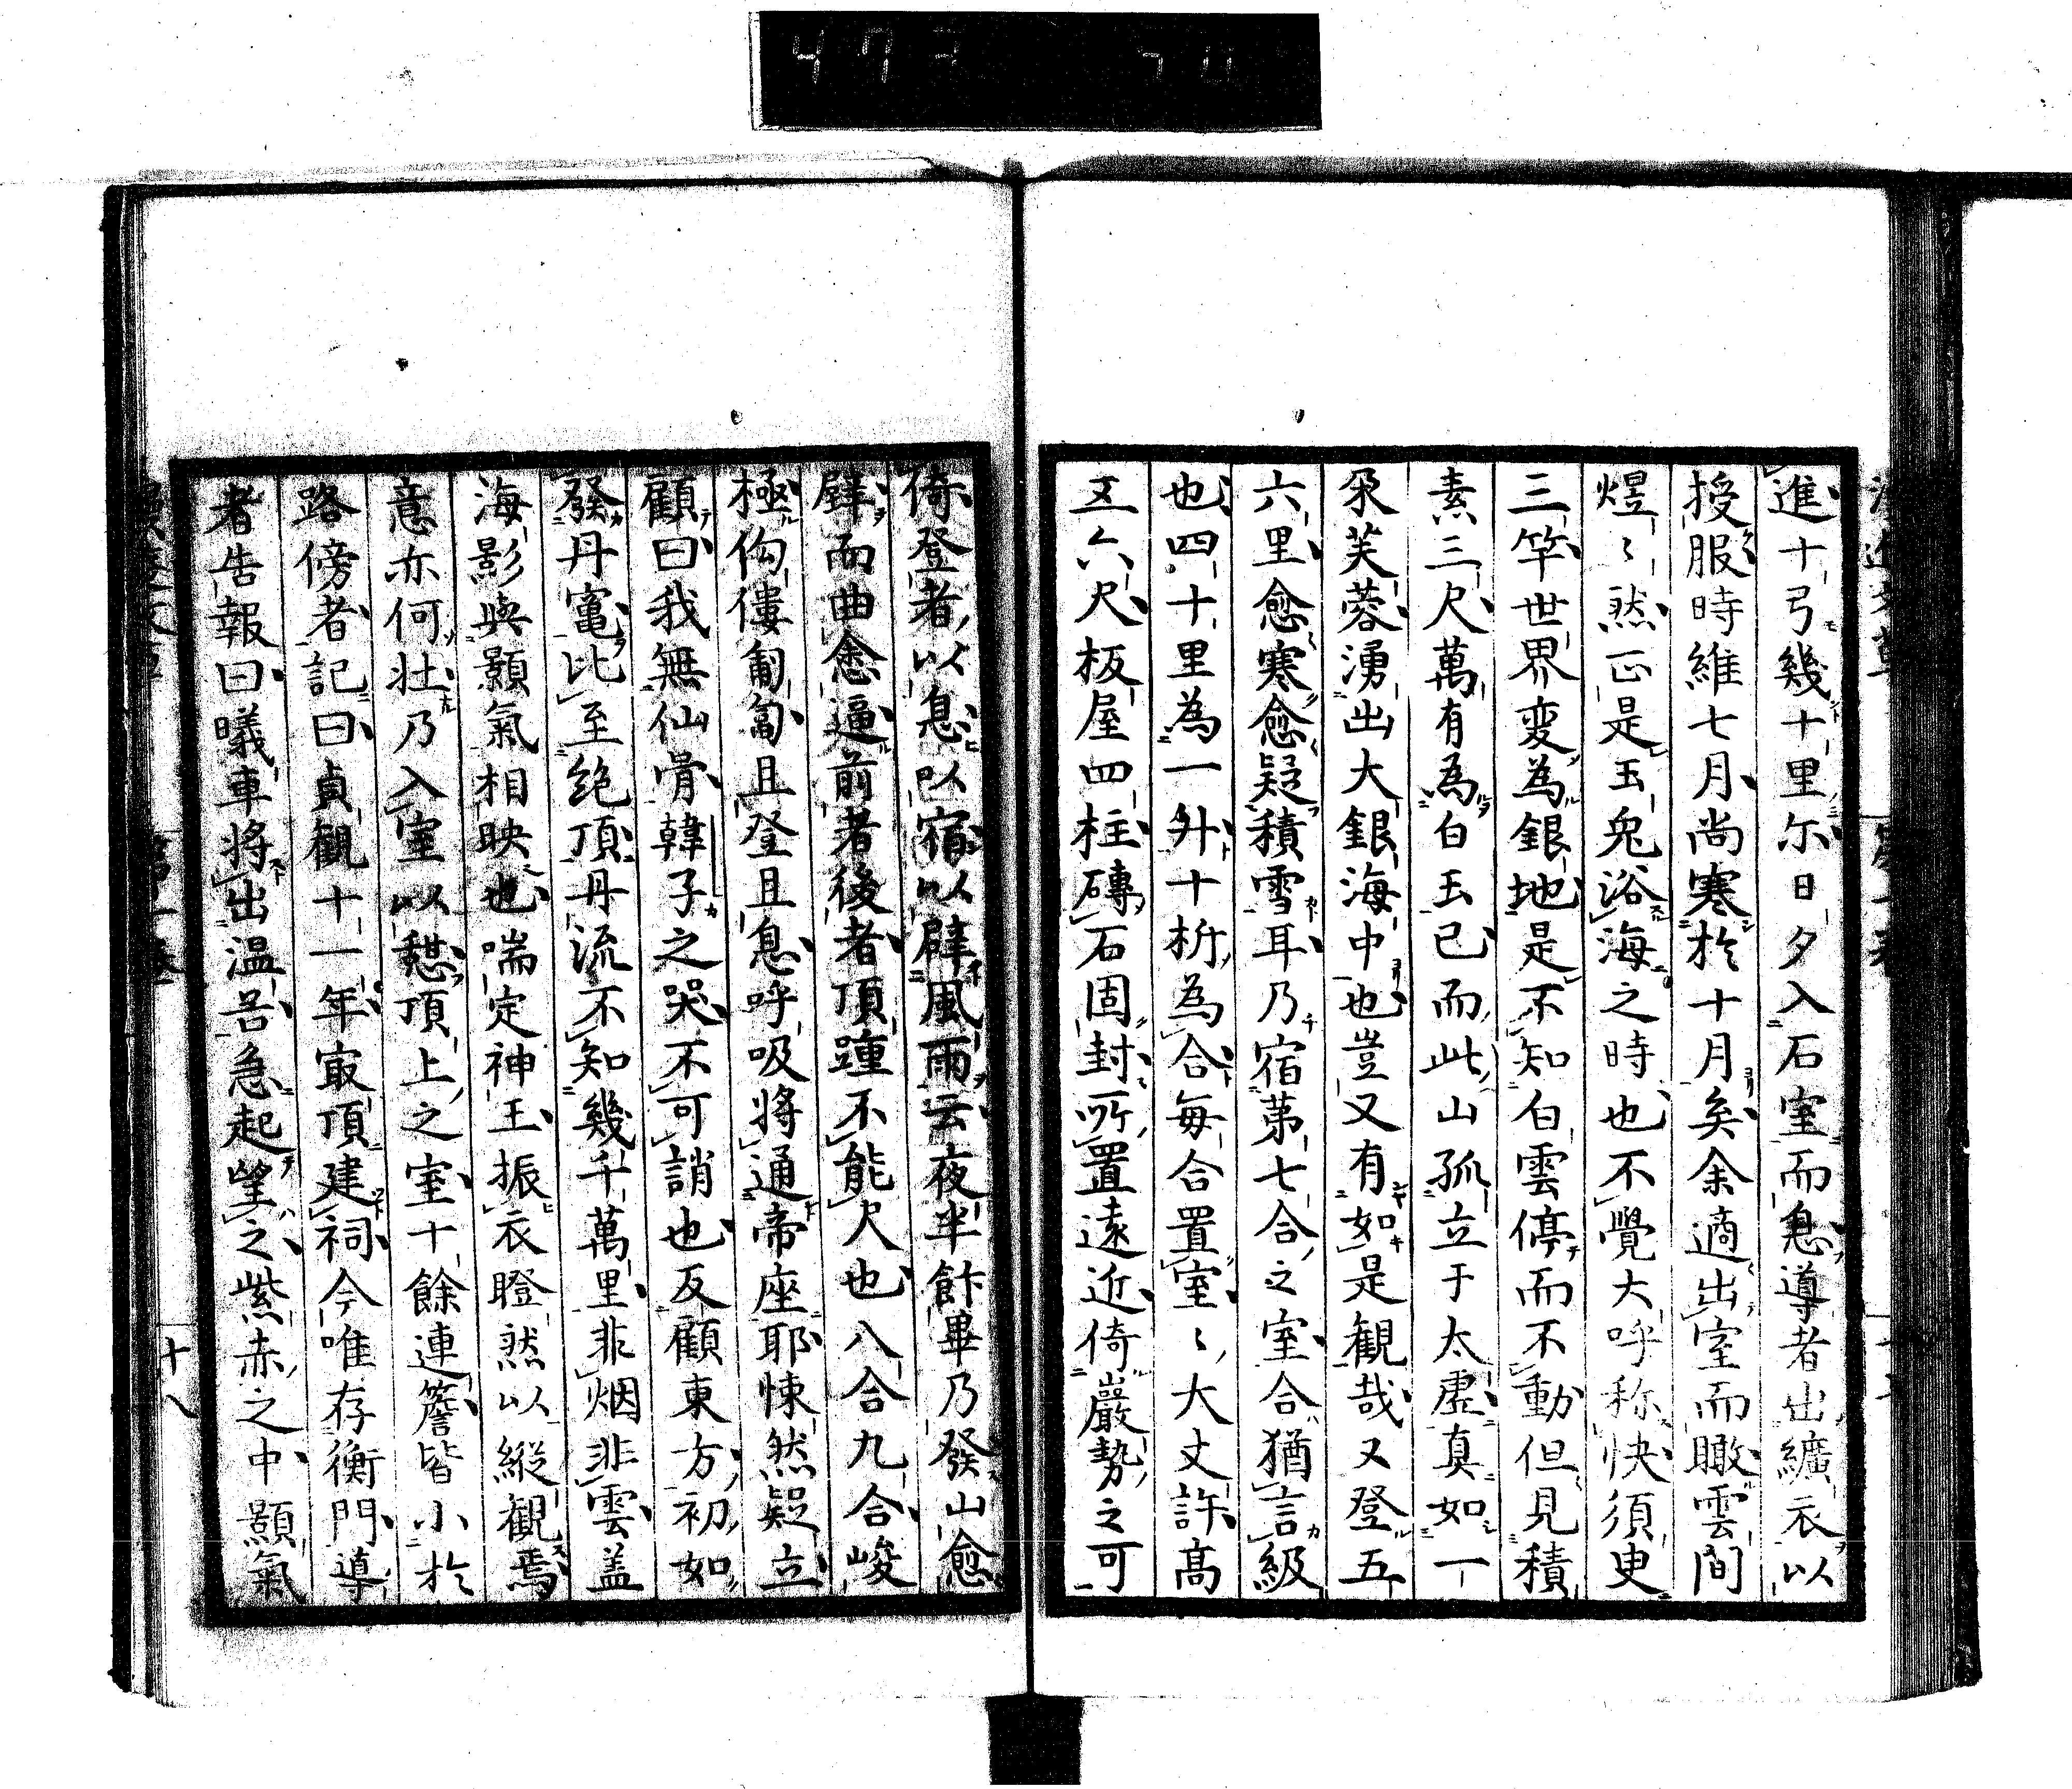 進十弓幾十里尓日夕入石室而息導者出纊衣以
授服時維七月尚寒於十月矣余適出室而瞰雲間
煜〻然正是玉兔浴海之時也不覺大呼称快須臾
三竿世界変為銀地是不知白雲停而不動但見積
素三尺萬有為白玉已而此山孤立于太虚真如一
朶芙蓉湧出大銀海中也豈又有如是観哉又登五
六里愈寒愈疑積雪耳乃宿第七合之室合猶言級
也四十里為一升十析為合每合置室〻大丈許高
五六尺板屋四柱磚石固封所置遠近倚巖勢之可
倚登者以息以宿以辟風雨云夜半餅畢乃發山愈
躃而曲愈逼前者後者頂踵不能尺也八合九合峻
極佝僂匍匐且登且息呼吸將通帝座耶悚然疑立
顧曰我無仙骨韓子之哭不可誚也反顧東方初如
發丹竈比至絶頂丹流不知幾千萬里非烟非雲盖
海影與顥氣相映也喘定神王振衣瞪然以縱觀焉
意亦何壮乃入室以憇頂上之室十餘連簷皆小於
路傍者記曰貞觀十一年㝡頂建祠今唯存衡門導
者告報曰曦車將出温谷急起望之紫赤之中顥氣
十八